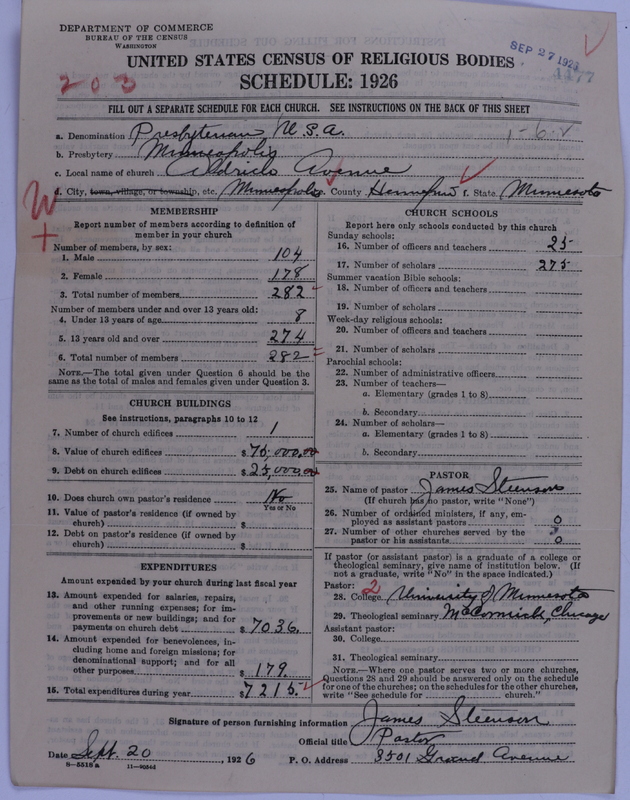 DEPARTMENT OF COMMERCE
BUREAU OF THE CENSUS
WASHINGTON
SEP 27 192
1177
UNITED STATES CENSUS OF RELIGIOUS BODIES
203
SCHEDULE: 1926
FILL OUT A SEPARATE SCHEDULE FOR EACH CHURCH. SEE INSTRUCTIONS ON THE BACK OF THIS SHEET
a. Denomination Presbyterian, U.S.A.
1-6-
b. Presbytery Minneapolis
c. Local name of church Aldrich Avenue
d. City, town, village, or township, etc. Minneapolis e. County Hennepin f. State Minnesota
W
+
MEMBERSHIP
Report number of members according to definition of
member in your church
Number of members, by sex:
1. Male 104
2. Female 178
3. Total number of members 282
Number of members under and over 13 years old:
4. Under 13 years of age 8
5. 13 years old and over 274
6. Total number of members 282
NOTE.—The total given under Question 6 should be the
same as the total of males and females given under Question 3.
CHURCH BUILDINGS
See instructions, paragraphs 10 to 12
7. Number of church edifices 1
8. Value of church edifices $75,000.00
9. Debt on church edifices $25,000.00
10. Does church own pastor's residence No
Yes or No
11. Value of pastor's residence (if owned by
church) $
12. Debt on pastor's residence (if owned by
church) $
EXPENDITURES
Amount expended by your church during last fiscal year
13. Amount expended for salaries, repairs,
and other running expenses; for im-
provements or new buildings; and for
payments on church debt $7036.
14. Amount expended for benevolences, in-
cluding home and foreign missions; for
denominational support; and for all
other purposes $179.
15. Total expenditures during year $7215.
CHURCH SCHOOLS
Report here only schools conducted by this church
Sunday schools:
16. Number of officers and teachers 25
17. Number of scholars 275
Summer vacation Bible schools:
18. Number of officers and teachers
19. Number of scholars
Week-day religious schools:
20. Number of officers and teachers
21. Number of scholars
Parochial schools:
22. Number of administrative officers
23. Number of teachers—
a. Elementary (grades 1 to 8)
b. Secondary
24. Number of scholars—
a. Elementary (grades 1 to 8)
b. Secondary
PASTOR
25. Name of pastor James Steenson
(If church has no pastor, write "None")
26. Number of ordained ministers, if any, em-
ployed as assistant pastors 0
27. Number of other churches served by the
pastor or his assistants 0
If pastor (or assistant pastor) is a graduate of a college or
theological seminary, give name of institution below. (If
not a graduate, write "No" in the space indicated.)
Pastor: 2
28. College University of Minnesota
29. Theological seminary McCormick, Chicago
Assistant pastor:
30. College
31. Theological seminary
NOTE.—Where one pastor serves two or more churches,
Questions 28 and 29 should be answered only on the schedule
for one of the churches; on the schedules for the other churches,
write "See schedule for church."
Signature of person furnishing information James Steenson
Official title Pastor
Date Sept. 20, 1926 P. O. Address 3501 Grand Avenue
8—5518 a